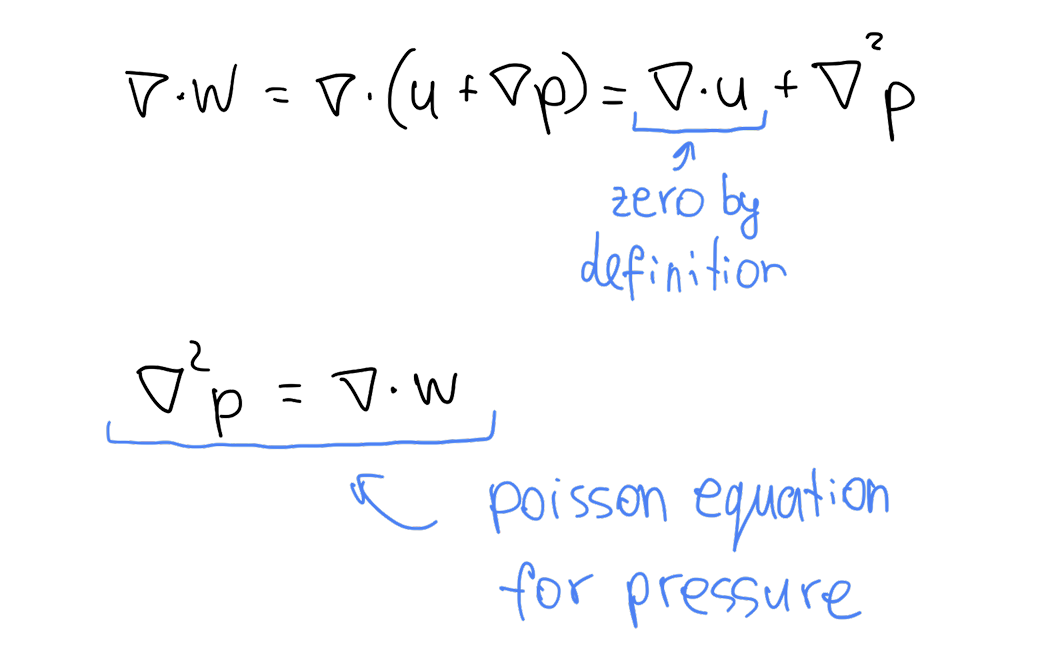 ∇·w = ∇·(u + ∇p) = ∇·u + ∇²p
zero by
definition
∇²p = ∇·w
poisson equation
for pressure